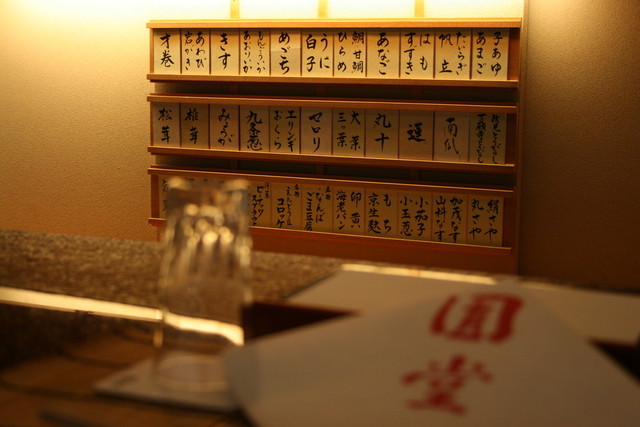 子あゆ
あまご
たらぎ
帆立
はも
すずき
あなご
鯛甘鯛
ひらめ
うに
白子
めごち
もんごいか
あおりいか
きす
あわび
岩かき
才巻
南瓜
蓮
丸十
大葉
三つ葉
セロリ
エリンギ
おくら
九条葱
みょうが
椎茸
松茸
絹さや
丸さや
加茂なす
山科なす
小茄子
小玉葱
もち
京生麩
卯黄
海老パン
なんば
ごま豆腐
コロッケ
圓堂